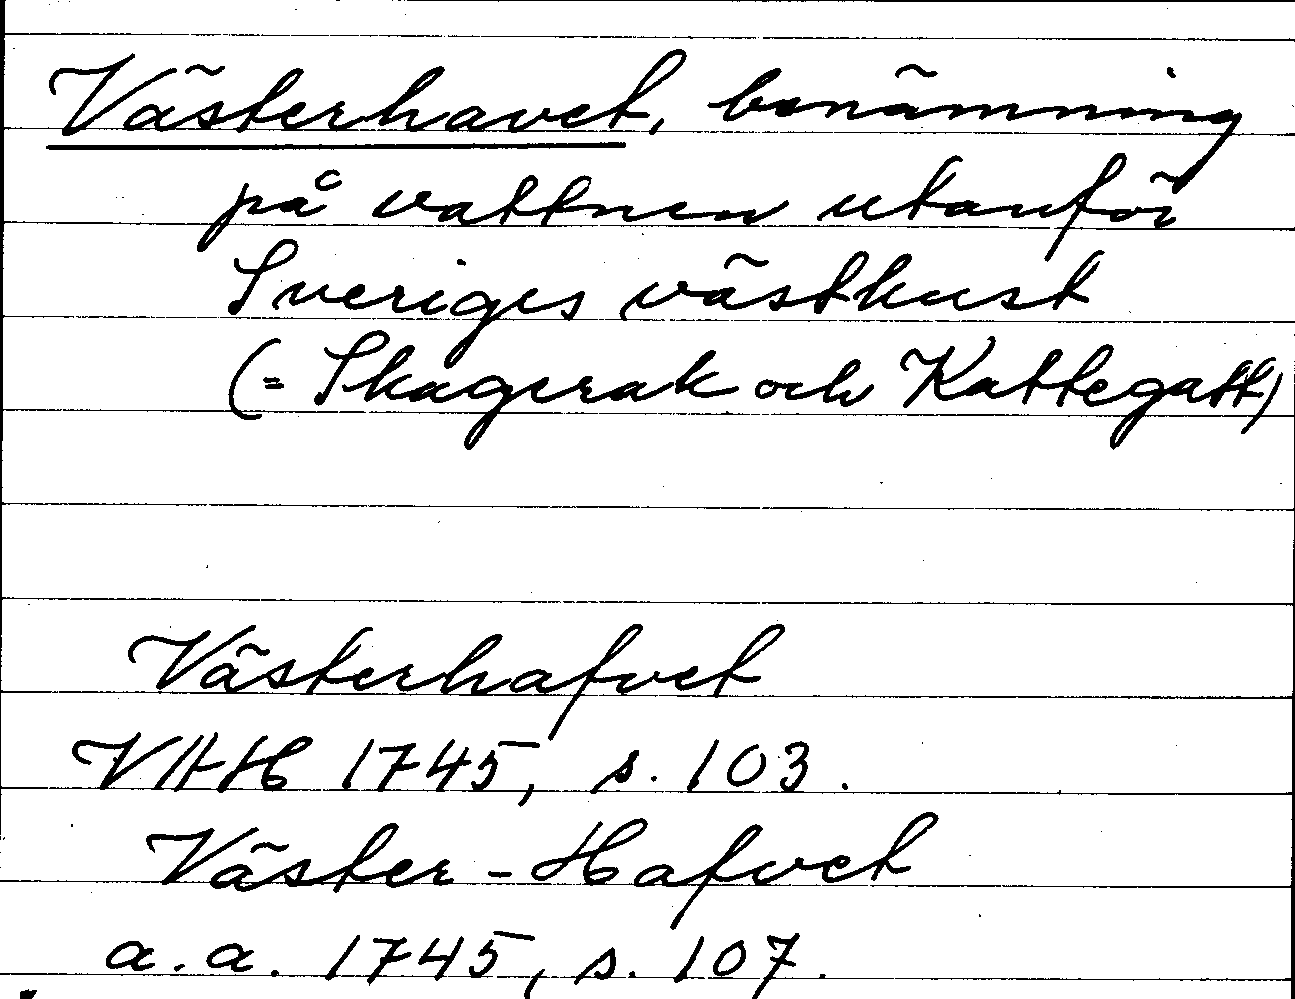 Västerhavet, benämning
på vattnen utanför
Sveriges västkust
(= Skagerak och Kattegatt)
Västerhafvet
VAH 1745, s. 103.
Väster-Hafvet
a.a. 1745, s. 107.